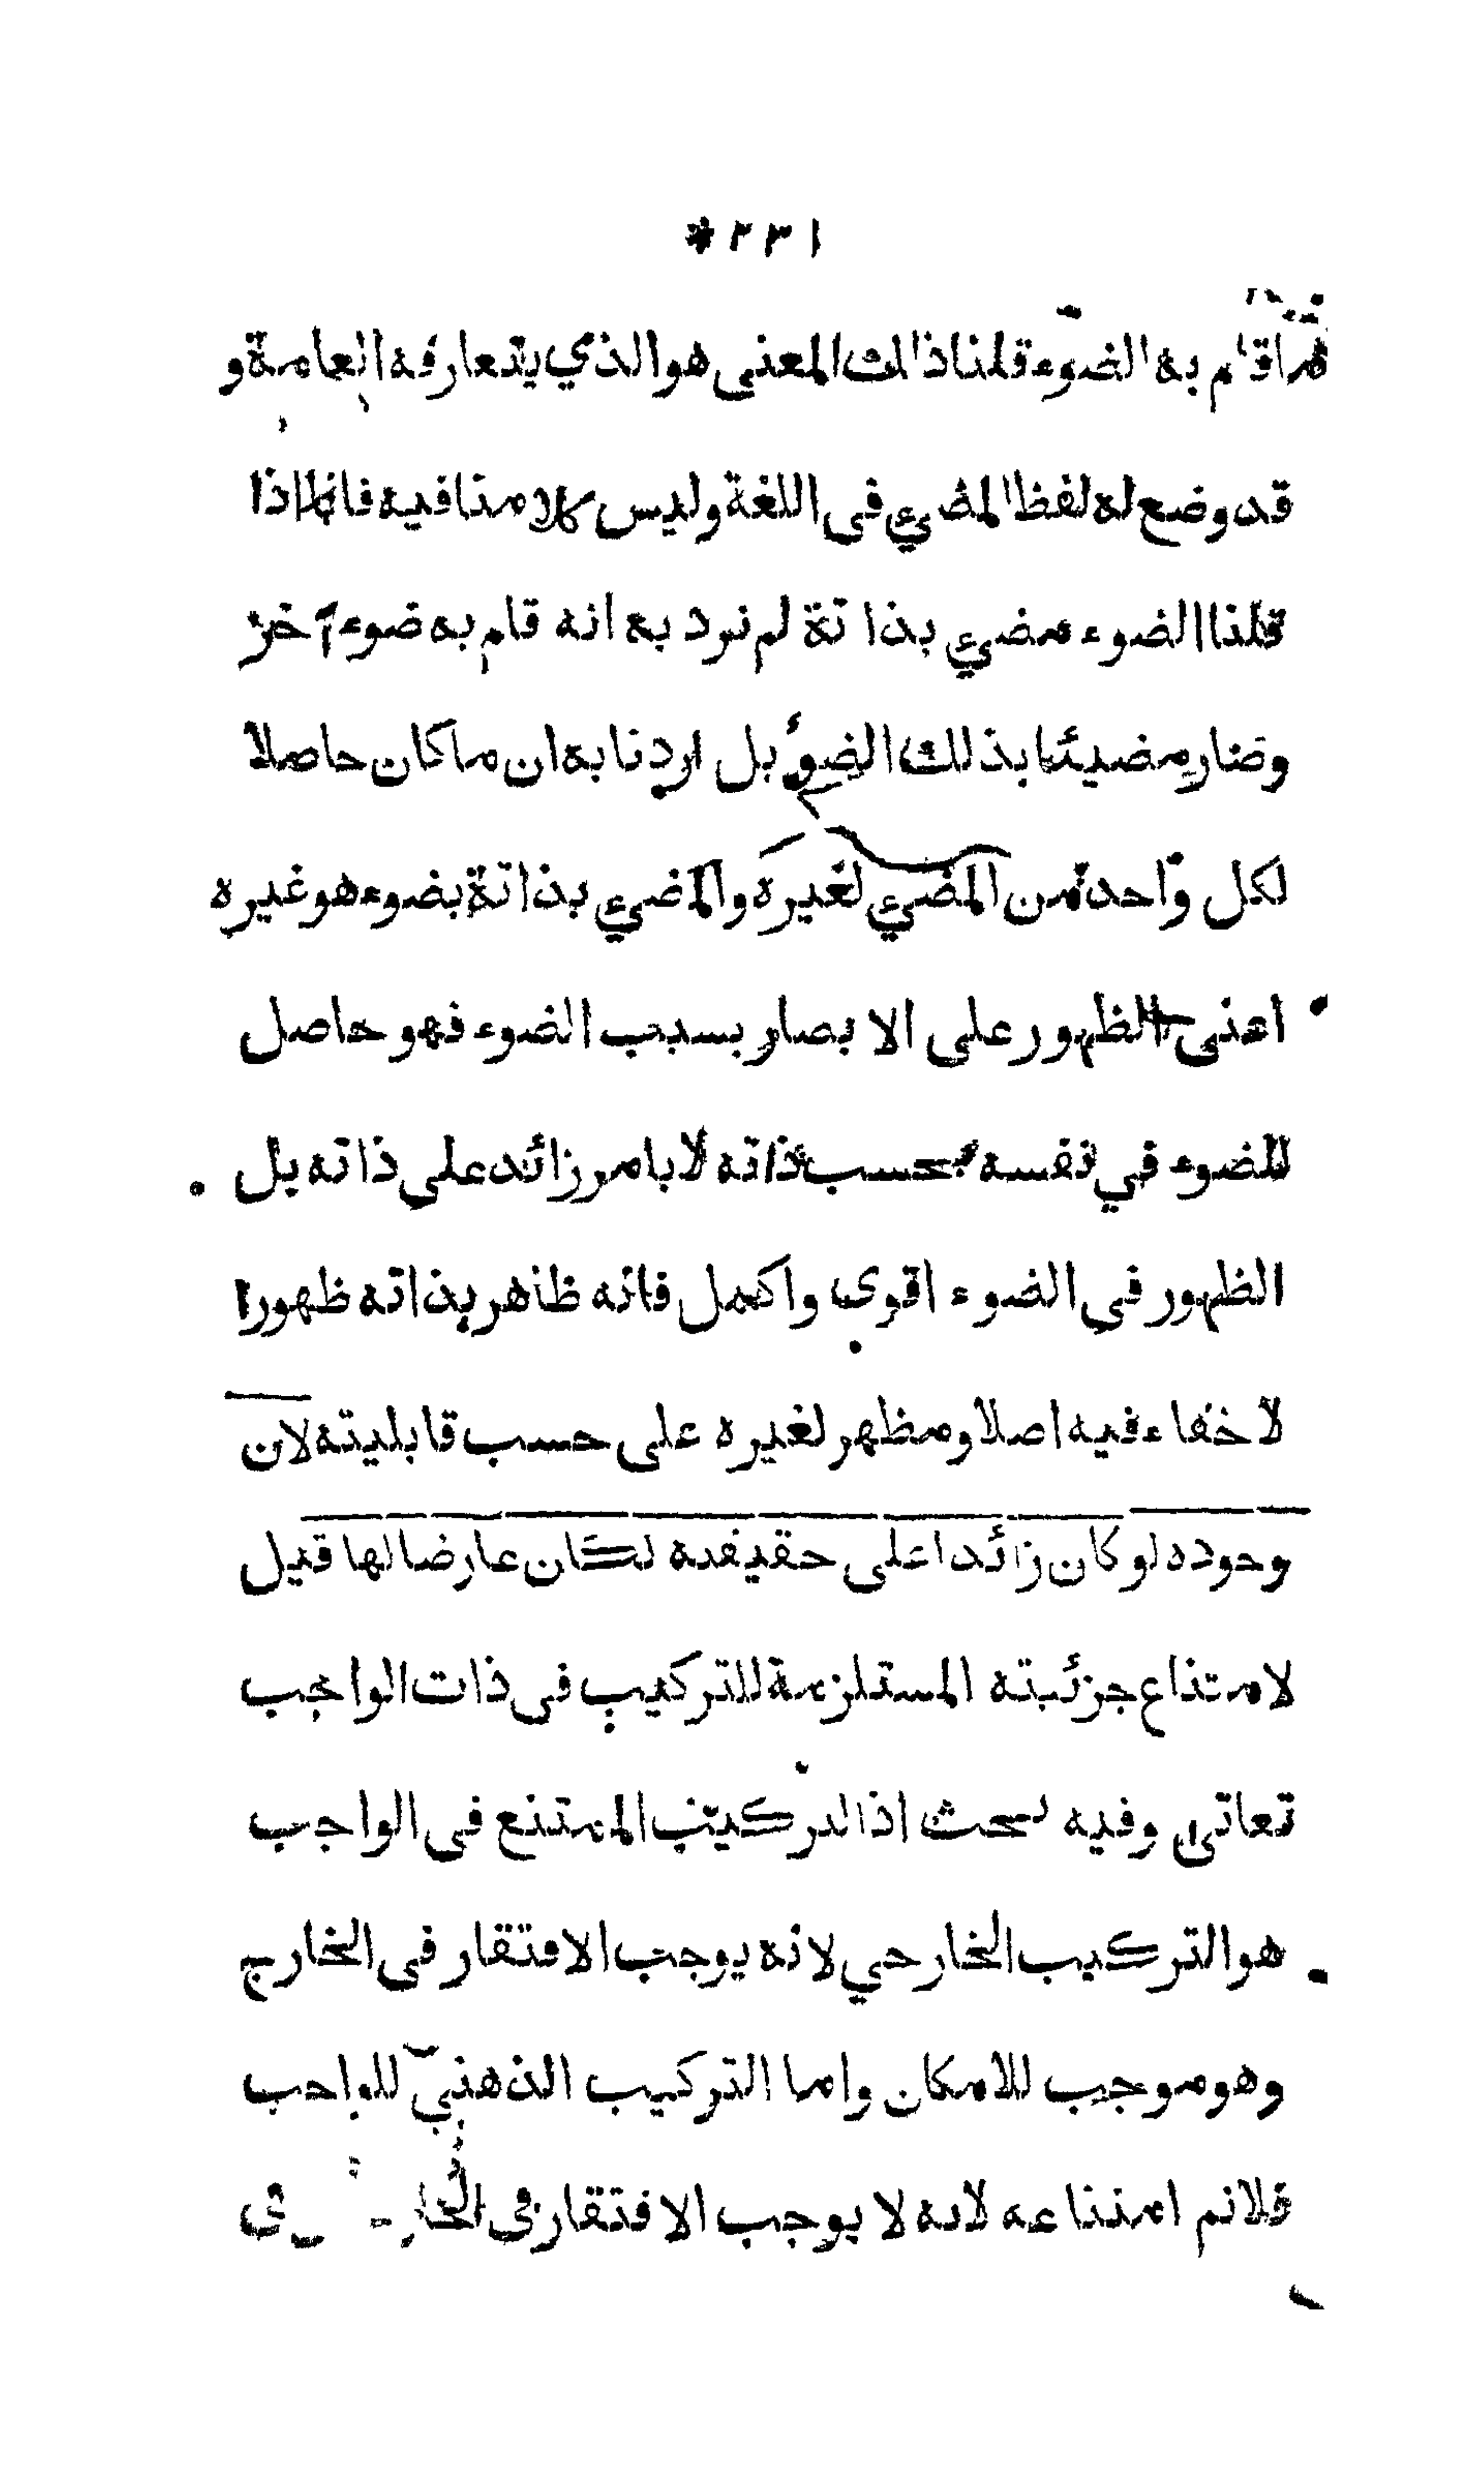 * ٢٣١
ما قام به الضوء قلنا ذالك المعنى هو الذي يتعارفه العامة و
قد وضع له لفظ المضيء فى اللغة وليس كلامنا فيه فانا اذا
قلنا الضوء مضيء بذاتة لم نرد به انه قام به ضوء آخر
وصار مضيئا بذلك الضوء بل اردنا به ان ما كان حاصلا
لكل واحد من المضيء لغيره والمضيء بذاتة بضوء هو غيره
اعنى الظهور على الابصار بسبب الضوء فهو حاصل
للضوء في نفسه بحسب ذاته لا بامر زائد على ذاته بل
الظهور في الضوء اقوى واكمل فانه ظاهر بذاته ظهورا
لا خفاء فيه اصلا ومظهر لغيره على حسب قابليته لان
وجوده لو كان زائدا على حقيقته لكان عارضا لها قيل
لامتناع جزئيته المستلزمة للتركيب فى ذات الواجب
تعالى وفيه بحث اذ التركيب الممتنع فى الواجب
هو التركيب الخارجي لانه يوجب الافتقار فى الخارج
وهو موجب للامكان واما التركيب الذهنيّ للواجب
فلانم امتناعه لانه لا يوجب الافتقار فى الخارج